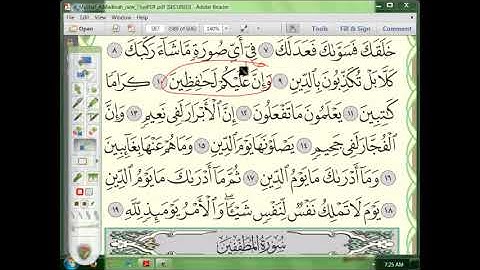 _Mushaf_AlMadinah_new_1.pdf (SECURED) - Adobe Reader
Tools
Fill & Sign
Comment
587
خَلَقَكَ فَسَوَّىٰكَ فَعَدَلَكَ ٧ فِىٓ أَىِّ صُورَةٍ مَّا شَآءَ رَكَّبَكَ ٨
كَلَّا بَلْ تُكَذِّبُونَ بِٱلدِّينِ ٩ وَإِنَّ عَلَيْكُمْ لَحَـٰفِظِينَ ١٠ كِرَامًا
كَـٰتِبِينَ ١١ يَعْلَمُونَ مَا تَفْعَلُونَ ١٢ إِنَّ ٱلْأَبْرَارَ لَفِى نَعِيمٍ ١٣ وَإِنَّ
ٱلْفُجَّارَ لَفِى جَحِيمٍ ١٤ يَصْلَوْنَهَا يَوْمَ ٱلدِّينِ ١٥ وَمَا هُمْ عَنْهَا بِغَآئِبِينَ
١٦ وَمَآ أَدْرَىٰكَ مَا يَوْمُ ٱلدِّينِ ١٧ ثُمَّ مَآ أَدْرَىٰكَ مَا يَوْمُ ٱلدِّينِ
١٨ يَوْمَ لَا تَمْلِكُ نَفْسٌ لِّنَفْسٍ شَيْـًٔا ۖ وَٱلْأَمْرُ يَوْمَئِذٍ لِّلَّهِ ١٩
سُورَةُ ٱلْمُطَفِّفِينَ
7:25 AM